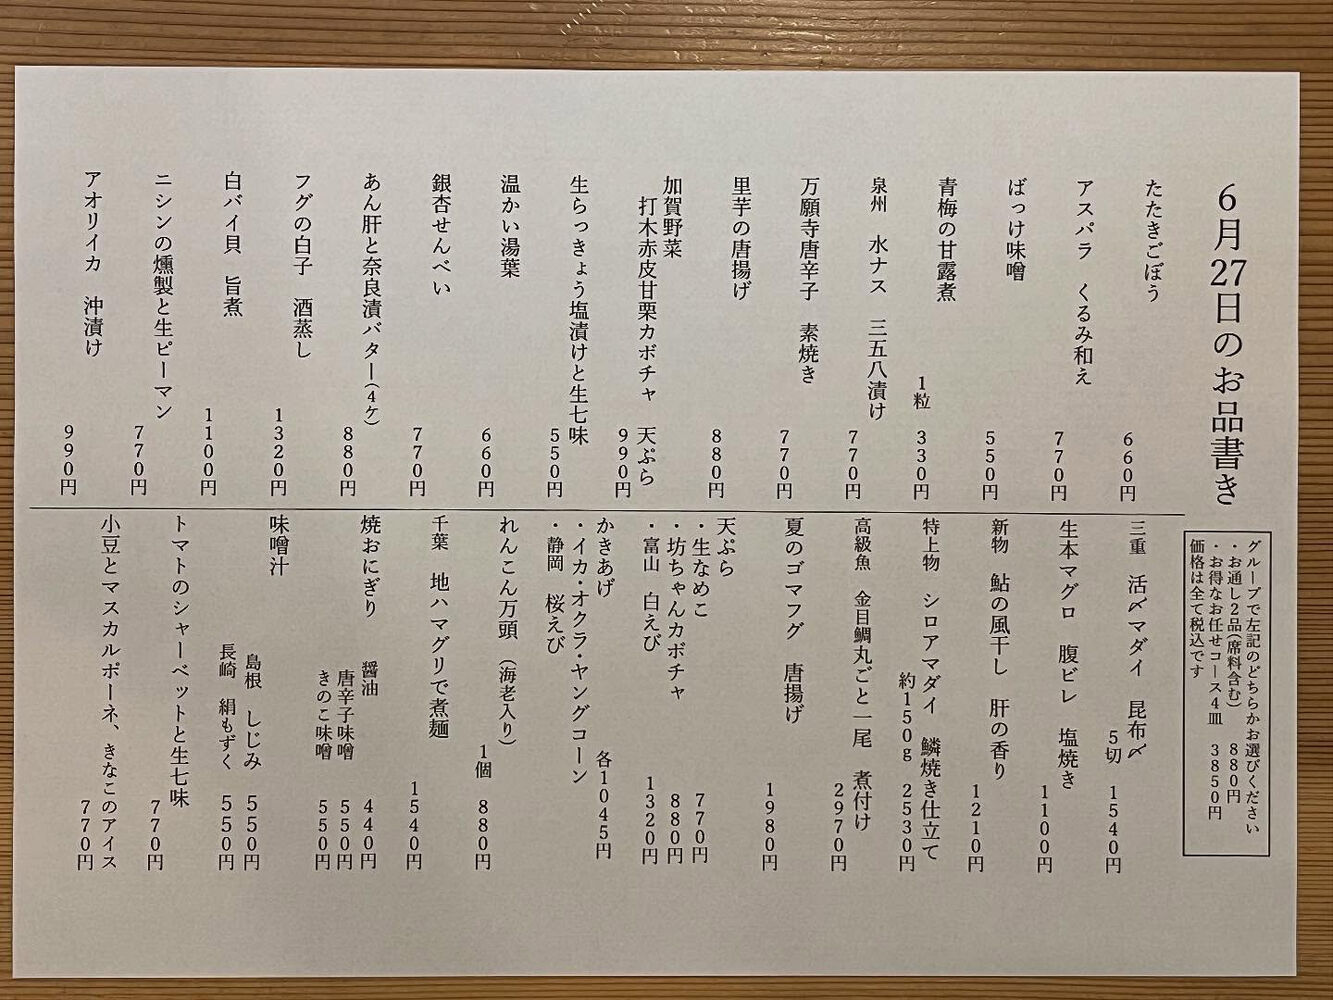 6月27日のお品書き
グループで左記のどちらかお選びください
・お通し2品(席料含む) 880円
・お得なお任せコース4皿 3850円
価格は全て税込です
たたきごぼう 660円
アスパラ くるみ和え 770円
ばっけ味噌 550円
青梅の甘露煮 1粒 330円
泉州 水ナス 三五八漬け 770円
万願寺唐辛子 素焼き 770円
里芋の唐揚げ 880円
加賀野菜
打木赤皮甘栗カボチャ 天ぷら 990円
生らっきょう塩漬けと生七味 550円
温かい湯葉 660円
銀杏せんべい 770円
あん肝と奈良漬バター(4ケ) 880円
フグの白子 酒蒸し 1320円
白バイ貝 旨煮 1100円
ニシンの燻製と生ピーマン 770円
アオリイカ 沖漬け 990円
三重 活〆マダイ 昆布〆 5切 1540円
生本マグロ 腹ビレ 塩焼き 1100円
新物 鮎の風干し 肝の香り 1210円
特上物 シロアマダイ 鱗焼き仕立て
約150g 2530円
高級魚 金目鯛丸ごと一尾 煮付け 2970円
夏のゴマフグ 唐揚げ 1980円
天ぷら
・生なめこ 770円
・坊ちゃんカボチャ 880円
・富山 白えび 1320円
かきあげ 各1045円
・イカ・オクラ・ヤングコーン
・静岡 桜えび
れんこん万頭 (海老入り) 1個 880円
千葉 地ハマグリで煮麺 1540円
焼おにぎり 醤油 440円
唐辛子味噌 550円
きのこ味噌 550円
味噌汁 島根 しじみ 550円
長崎 絹もずく 550円
トマトのシャーベットと生七味 770円
小豆とマスカルポーネ、きなこのアイス 770円